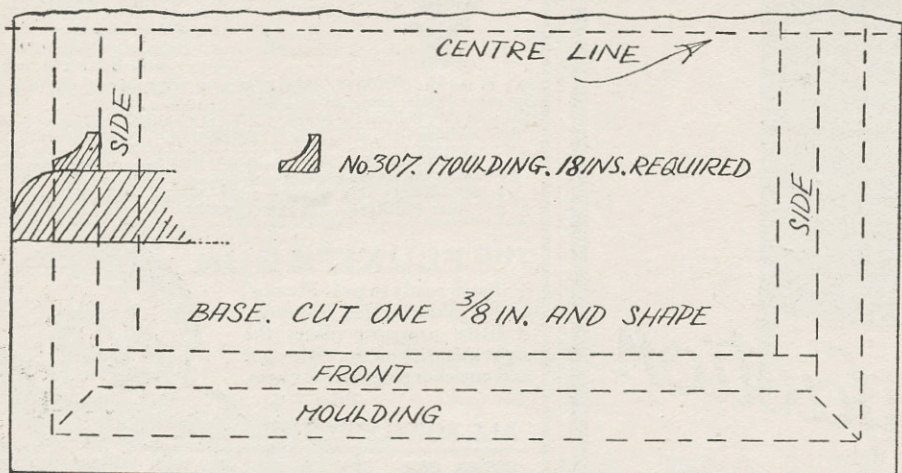 CENTRE LINE
SIDE
No307. MOULDING. 18INS. REQUIRED
SIDE
BASE. CUT ONE 3/8 IN. AND SHAPE
FRONT
MOULDING